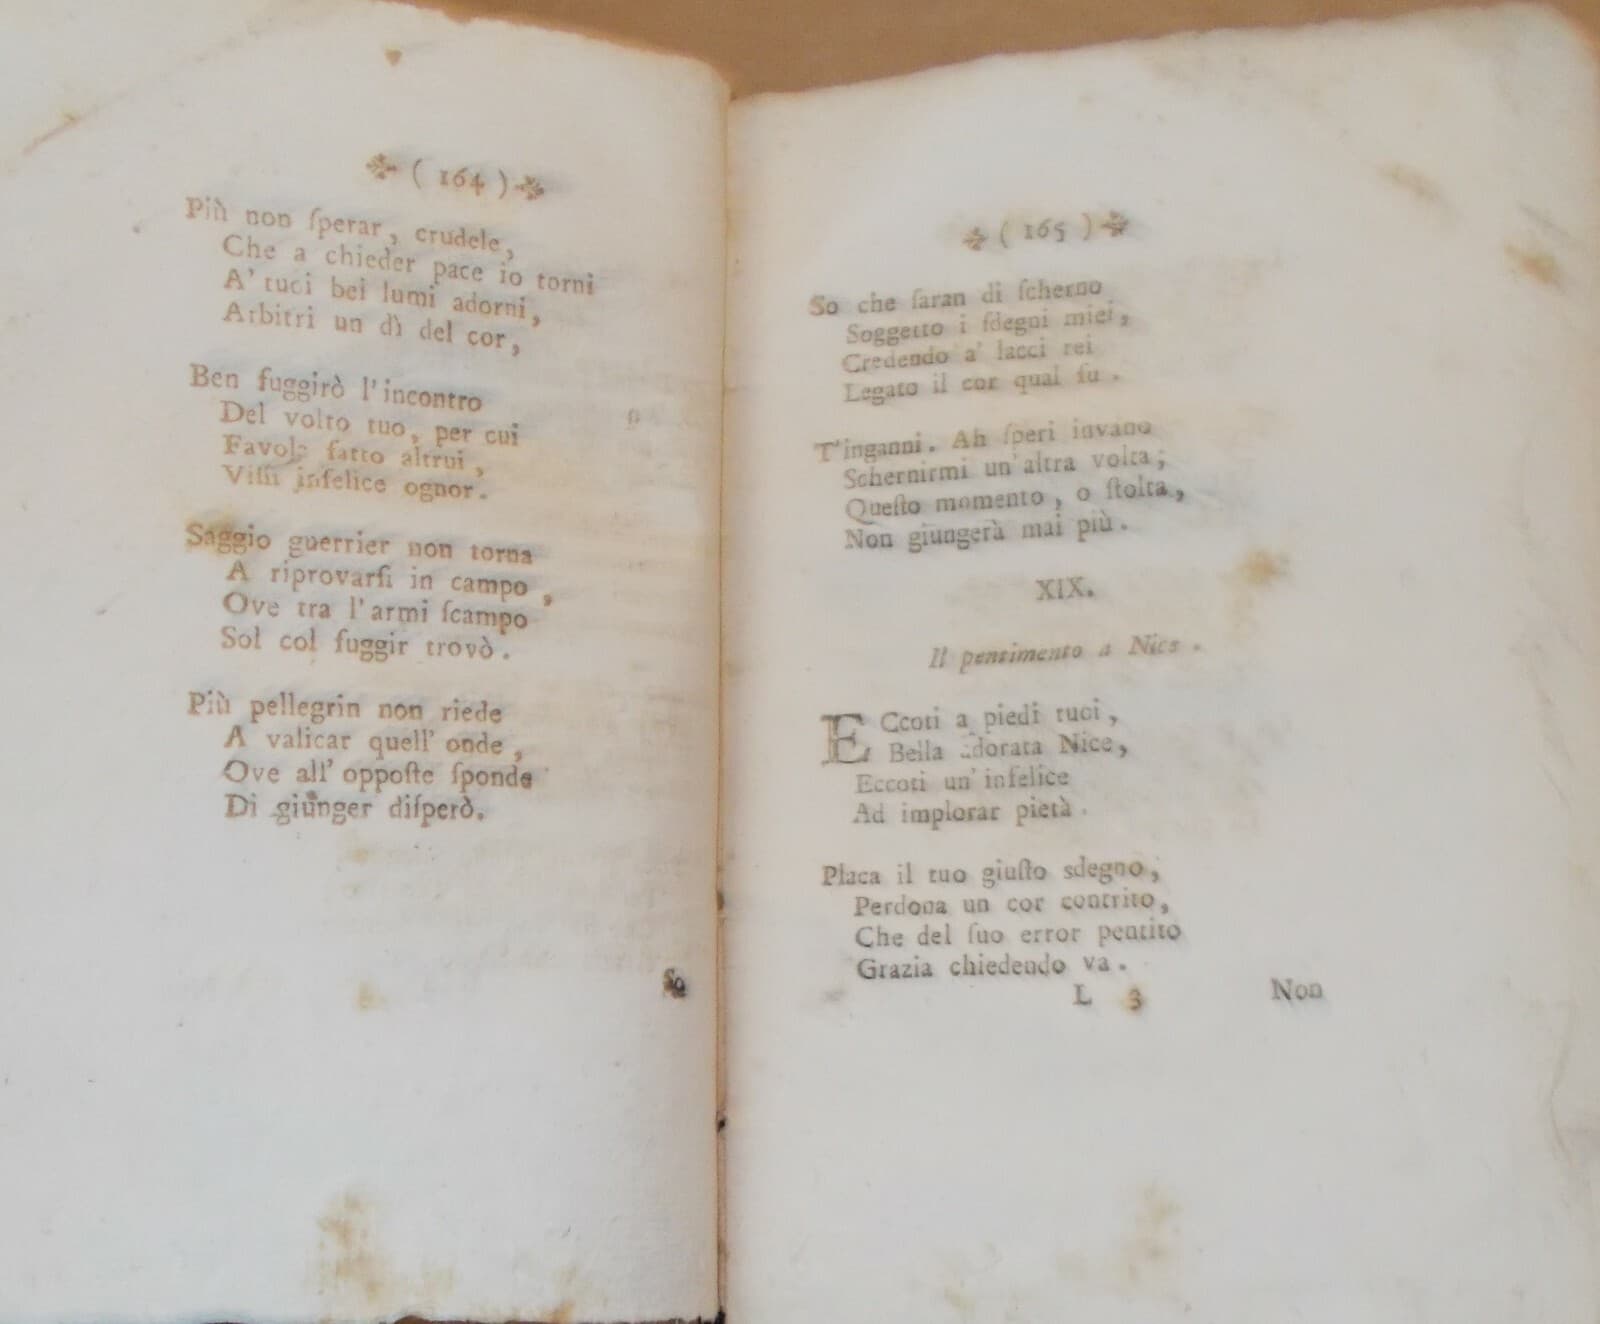 ( 164 )
Più non ſperar, crudele,
Che a chieder pace io torni
A' tuoi bei lumi adorni,
Arbitri un dì del cor,
Ben fuggirò l'incontro
Del volto tuo, per cui
Favola fatto altrui,
Viſſi infelice ognor.
Saggio guerrier non torna
A riprovarſi in campo,
Ove tra l'armi ſcampo
Sol col fuggir trovò.
Più pellegrin non riede
A valicar quell' onde,
Ove all' oppoſte ſponde
Di giunger diſperò.
So
( 165 )
So che ſaran di ſcherno
Soggetto i ſdegni miei,
Credendo a' lacci rei
Legato il cor qual fu.
T'inganni. Ah ſperi invano
Schernirmi un' altra volta;
Queſto momento, o ſtolta,
Non giungerà mai più.
XIX.
Il pentimento a Nice.
ECcoti a piedi tuoi,
Bella adorata Nice,
Eccoti un' infelice
Ad implorar pietà.
Placa il tuo giuſto sdegno,
Perdona un cor contrito,
Che del ſuo error pentito
Grazia chiedendo va.
L 3 Non